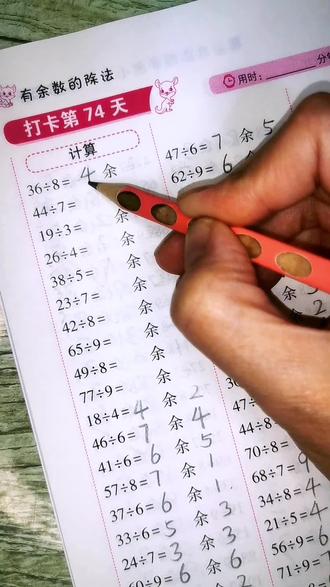 有余数的除法
打卡第 74 天
用时:
计算
36÷8= 4 余
44÷7= 余
19÷3= 余
26÷4= 余
38÷5= 余
23÷7= 余
42÷8= 余
65÷9= 余
49÷8= 余
77÷9= 余
18÷4= 4 余 2
46÷6= 7 余 4
41÷6= 6 余 5
57÷8= 7 余 1
37÷6= 6 余 1
33÷6= 5 余 3
24÷7= 3 余 3
60÷9= 6 余 6
47÷6= 7 余 5
62÷9= 6
余
余 2
47÷
44÷8=
70÷8=
68÷7= 9
34÷8= 4
21÷5= 4
56÷9= 6
71÷9=